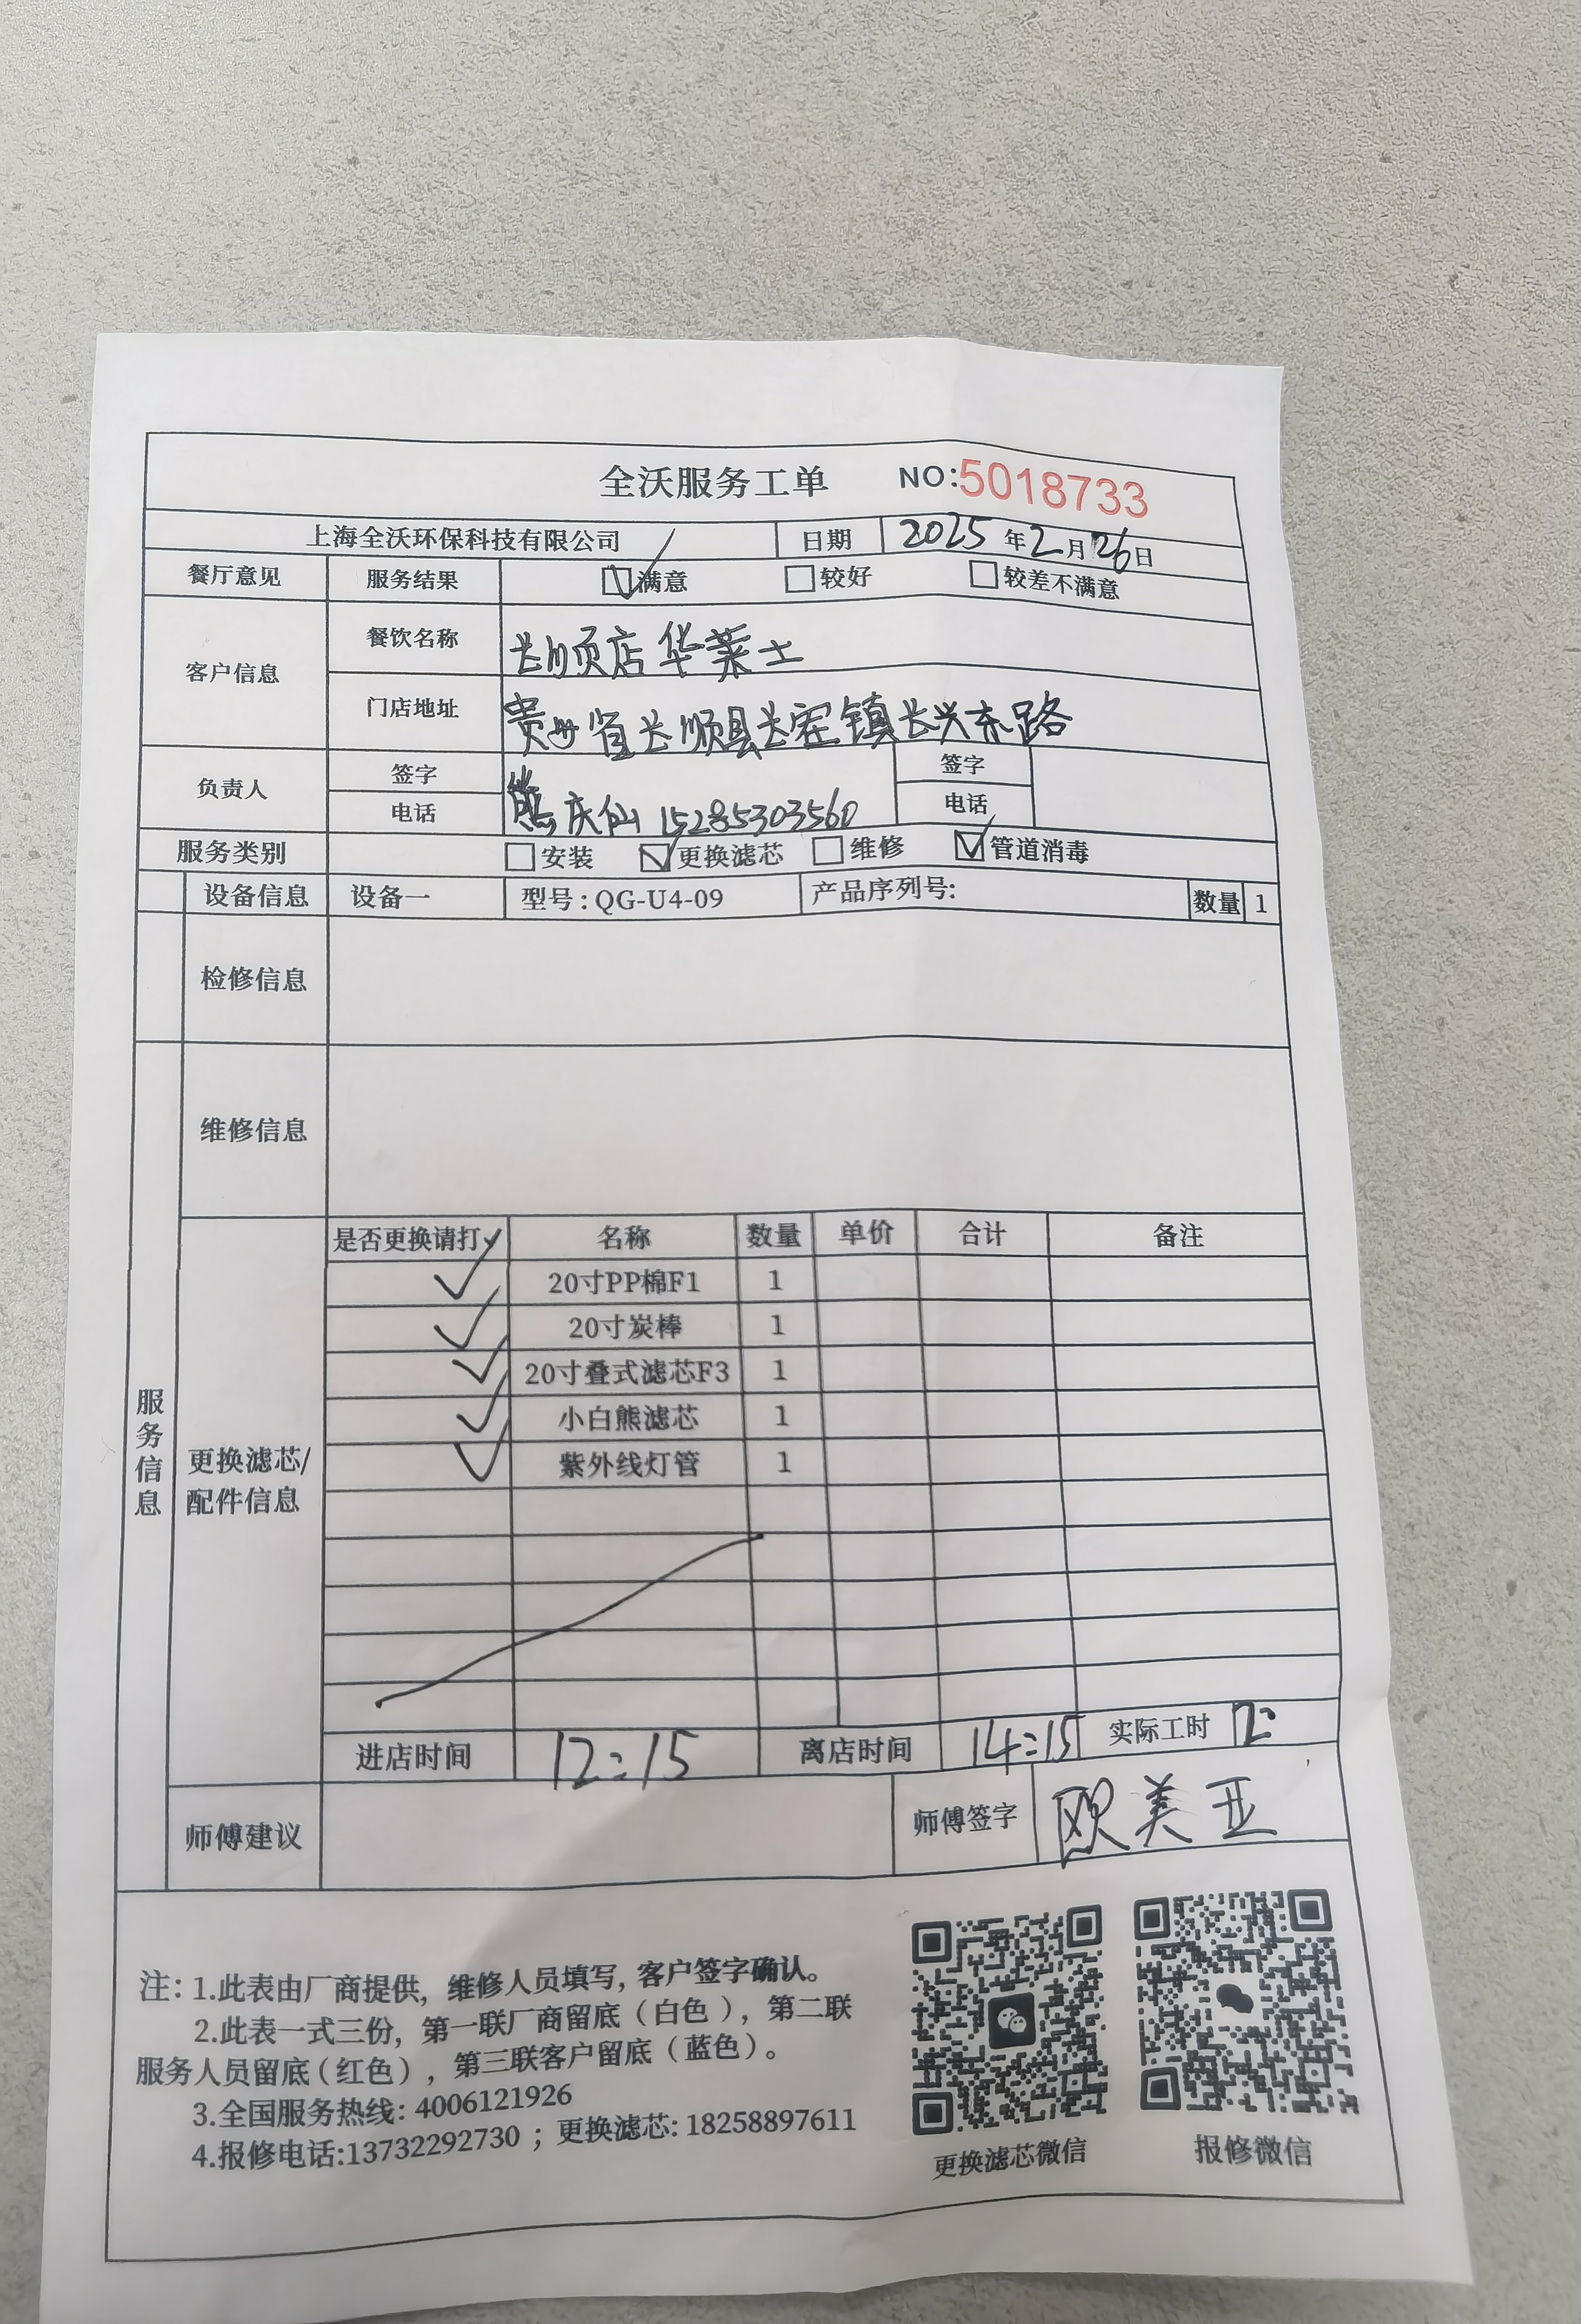 全沃服务工单 NO:5018733
上海全沃环保科技有限公司 日期 2025年2月26日
餐厅意见 服务结果 ☑满意 □较好 □较差不满意
客户信息 餐饮名称 长顺店华莱士
门店地址 贵州省长顺县长寨镇长兴东路
负责人 签字 电话 熊庆仙 15285303560 签字 电话
服务类别 □安装 ☑更换滤芯 □维修 ☑管道消毒
设备信息 设备一 型号:QG-U4-09 产品序列号: 数量 1
检修信息
维修信息
服务信息
更换滤芯/配件信息
是否更换请打✓ 名称 数量 单价 合计 备注
✓ 20寸PP棉F1 1
✓ 20寸炭棒 1
✓ 20寸叠式滤芯F3 1
✓ 小白熊滤芯 1
✓ 紫外线灯管 1
进店时间 12:15 离店时间 14:15 实际工时 2
师傅建议 师傅签字 欧美亚
注: 1.此表由厂商提供, 维修人员填写, 客户签字确认。
2.此表一式三份, 第一联厂商留底（白色）, 第二联
服务人员留底（红色）, 第三联客户留底（蓝色）。
3.全国服务热线: 4006121926
4.报修电话:13732292730 ; 更换滤芯: 18258897611
更换滤芯微信 报修微信